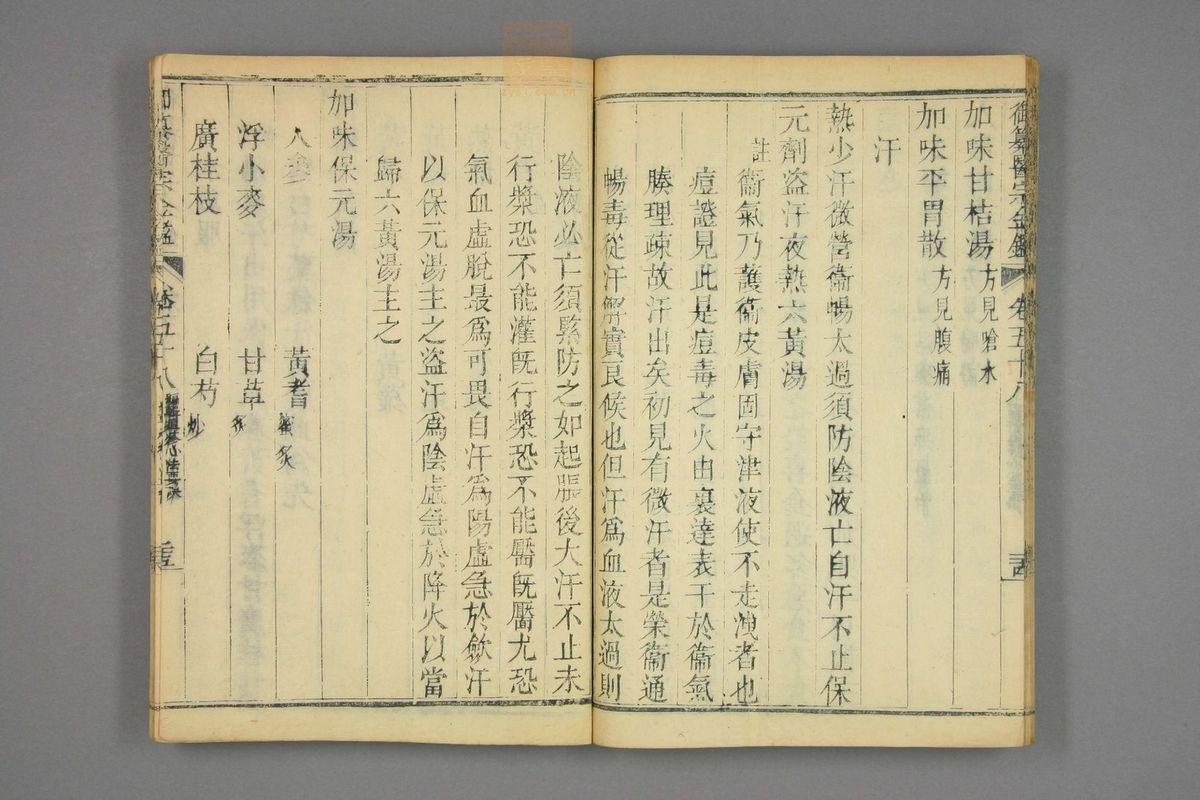 御纂醫宗金鑑 卷五十八
加味甘桔湯方見嗆水
加味平胃散方見腹痛
汗
熱少汗微營衞暢太過須防陰液亡自汗不止保
元劑盜汗夜熱六黃湯
註 衞氣乃護衞皮膚固守津液使不走洩者也
痘證見此是痘毒之火由裏達表干於衞氣
腠理疎故汗出矣初見有微汗者是榮衞通
暢毒從汗解實良候也但汗爲血液太過則
陰液必亡須緊防之如起脹後大汗不止未
行漿恐不能灌旣行漿恐不能靨旣靨尤恐
氣血虛脫最爲可畏自汗爲陽虛急於歛汗
以保元湯主之盜汗爲陰虛急於降火以當
歸六黃湯主之
加味保元湯
人參 黃耆蜜炙
浮小麥 甘草炙
廣桂枝 白芍炒
卷五十八